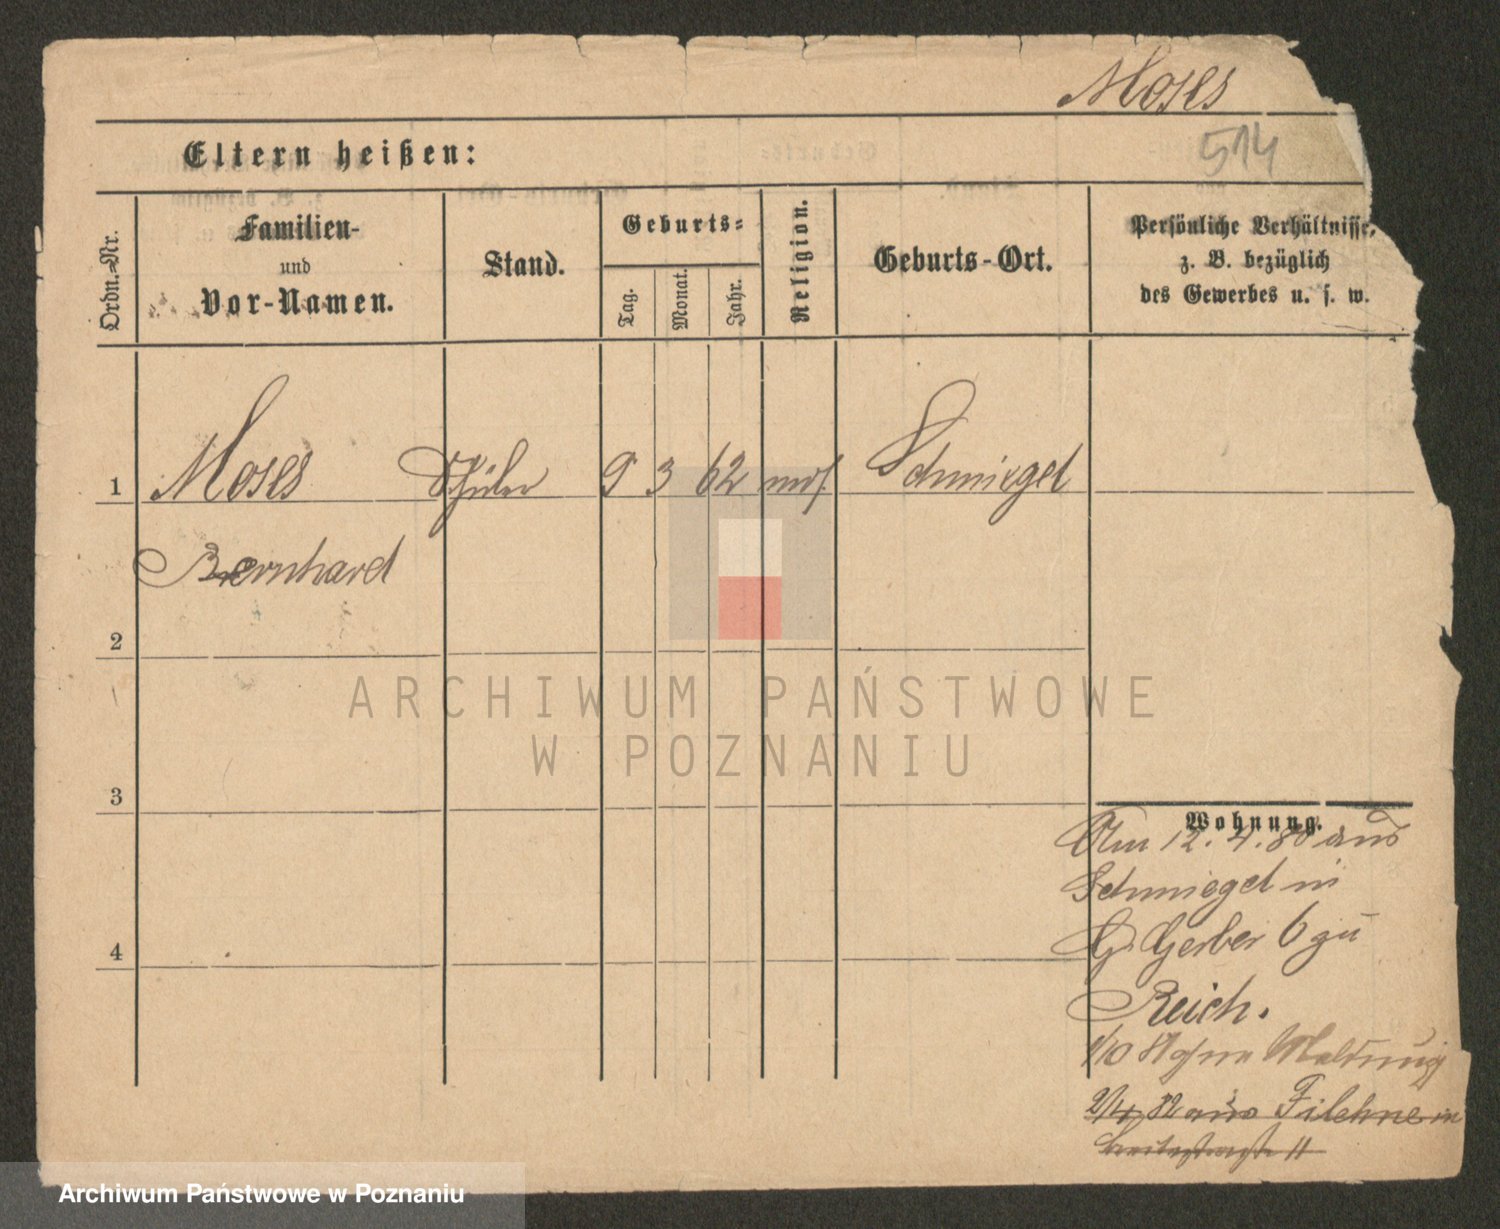 Moses
514
Eltern heißen:
Ordn.-Nr.
Familien-
und
Vor-Namen.
Stand.
Geburts-
Tag.
Monat.
Jahr.
Religion.
Geburts-Ort.
Persönliche Verhältnisse,
z. B. bezüglich
des Gewerbes u. s. w.
1 Moses Schüler 9 3 62 mos. Schmiegel
Bernhard
2
3
4
Wohnung.
Am 12. 4. 80 aus
Schmiegel in
G. Gerber 6 zu
Reich.
1/10 81 ohne Meldung
2/4 82 aus Filehne in
Breitestraße 11
ARCHIWUM PAŃSTWOWE
W POZNANIU
Archiwum Państwowe w Poznaniu